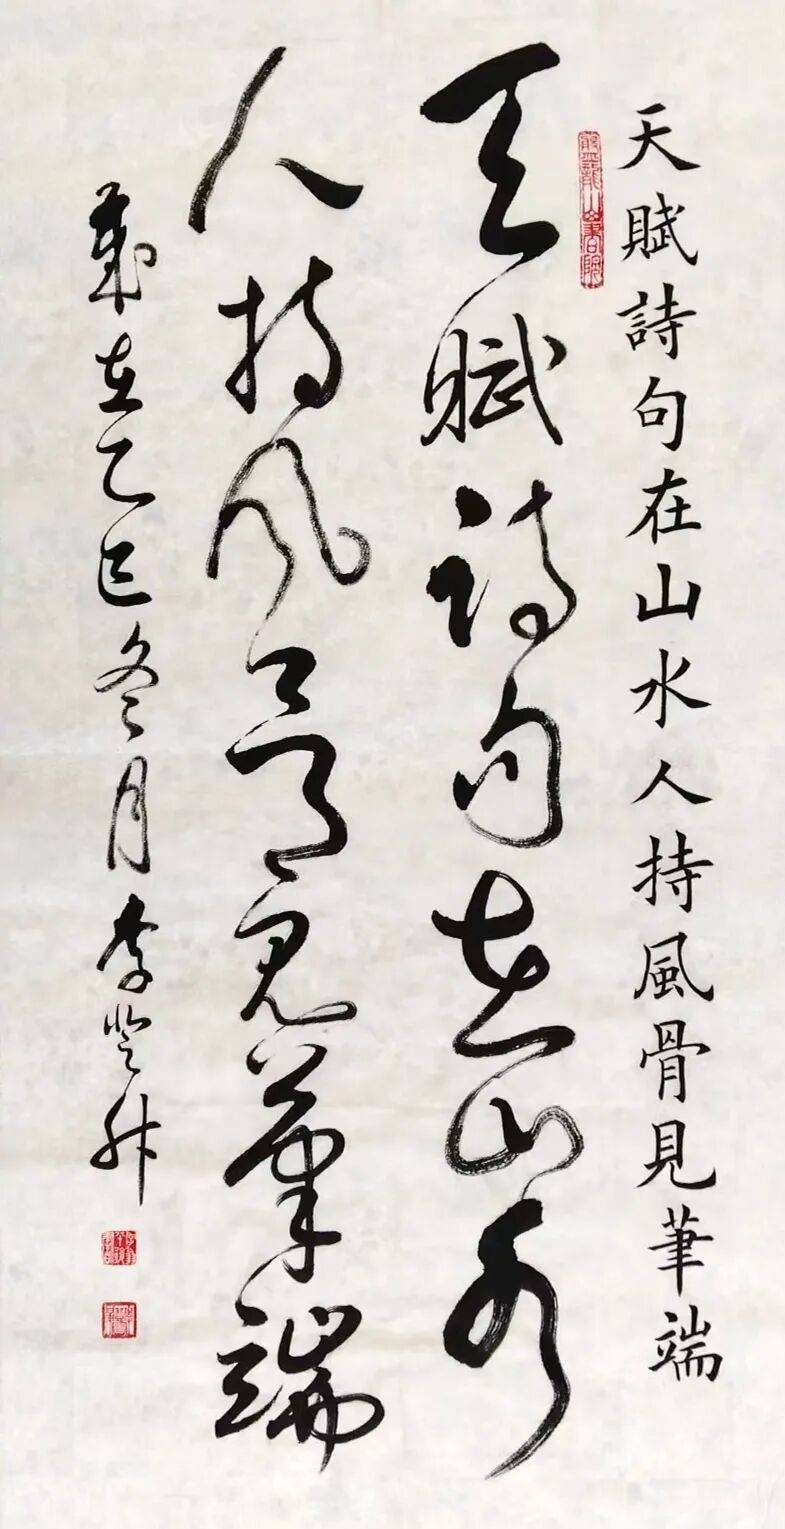 天賦詩句在山水人持風骨見筆端
天賦詩句在山水
人持風骨見筆端
歲在乙巳冬月李登財